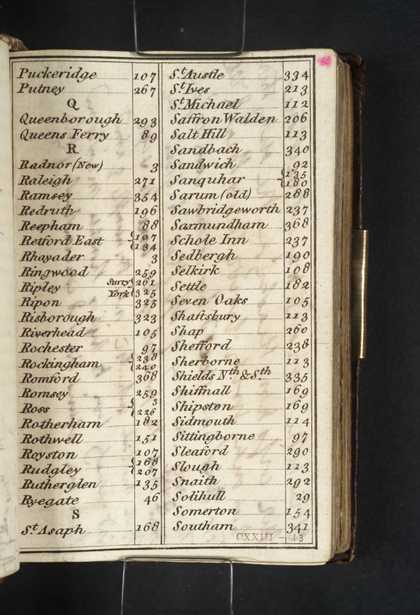 Puckeridge 107
Putney 267
Q
Queenborough 293
Queens Ferry 89
R
Radnor (New) 3
Raleigh 271
Ramsey 354
Redruth 196
Reepham 88
Retford East 107 134
Rhayader 3
Ringwood 259
Ripley Surry 261 York 325
Ripon 325
Risborough 323
Riverhead 105
Rochester 97
Rockingham 238 240
Romford 368
Romsey 259
Ross 3 226
Rotherham 182
Rothwell 151
Royston 107
Rudgley 168 207
Rutherglen 135
Ryegate 46
S
St. Asaph 168
St. Austle 334
St. Ives 213
St. Michael 112
Saffron Walden 206
Salt Hill 113
Sandbach 340
Sandwich 92
Sanquhar 135 180
Sarum (old) 288
Sawbridgeworth 237
Saxmundham 368
Schole Inn 237
Sedbergh 190
Selkirk 108
Settle 182
Seven Oaks 105
Shaftsbury 113
Shap 260
Shefford 238
Sherborne 113
Shields Nth. & Sth 335
Shiffnall 169
Shipston 169
Sidmouth 114
Sittingborne 97
Sleaford 290
Slough 113
Snaith 292
Solihull 29
Somerton 154
Southam 341
CXXIII - 43